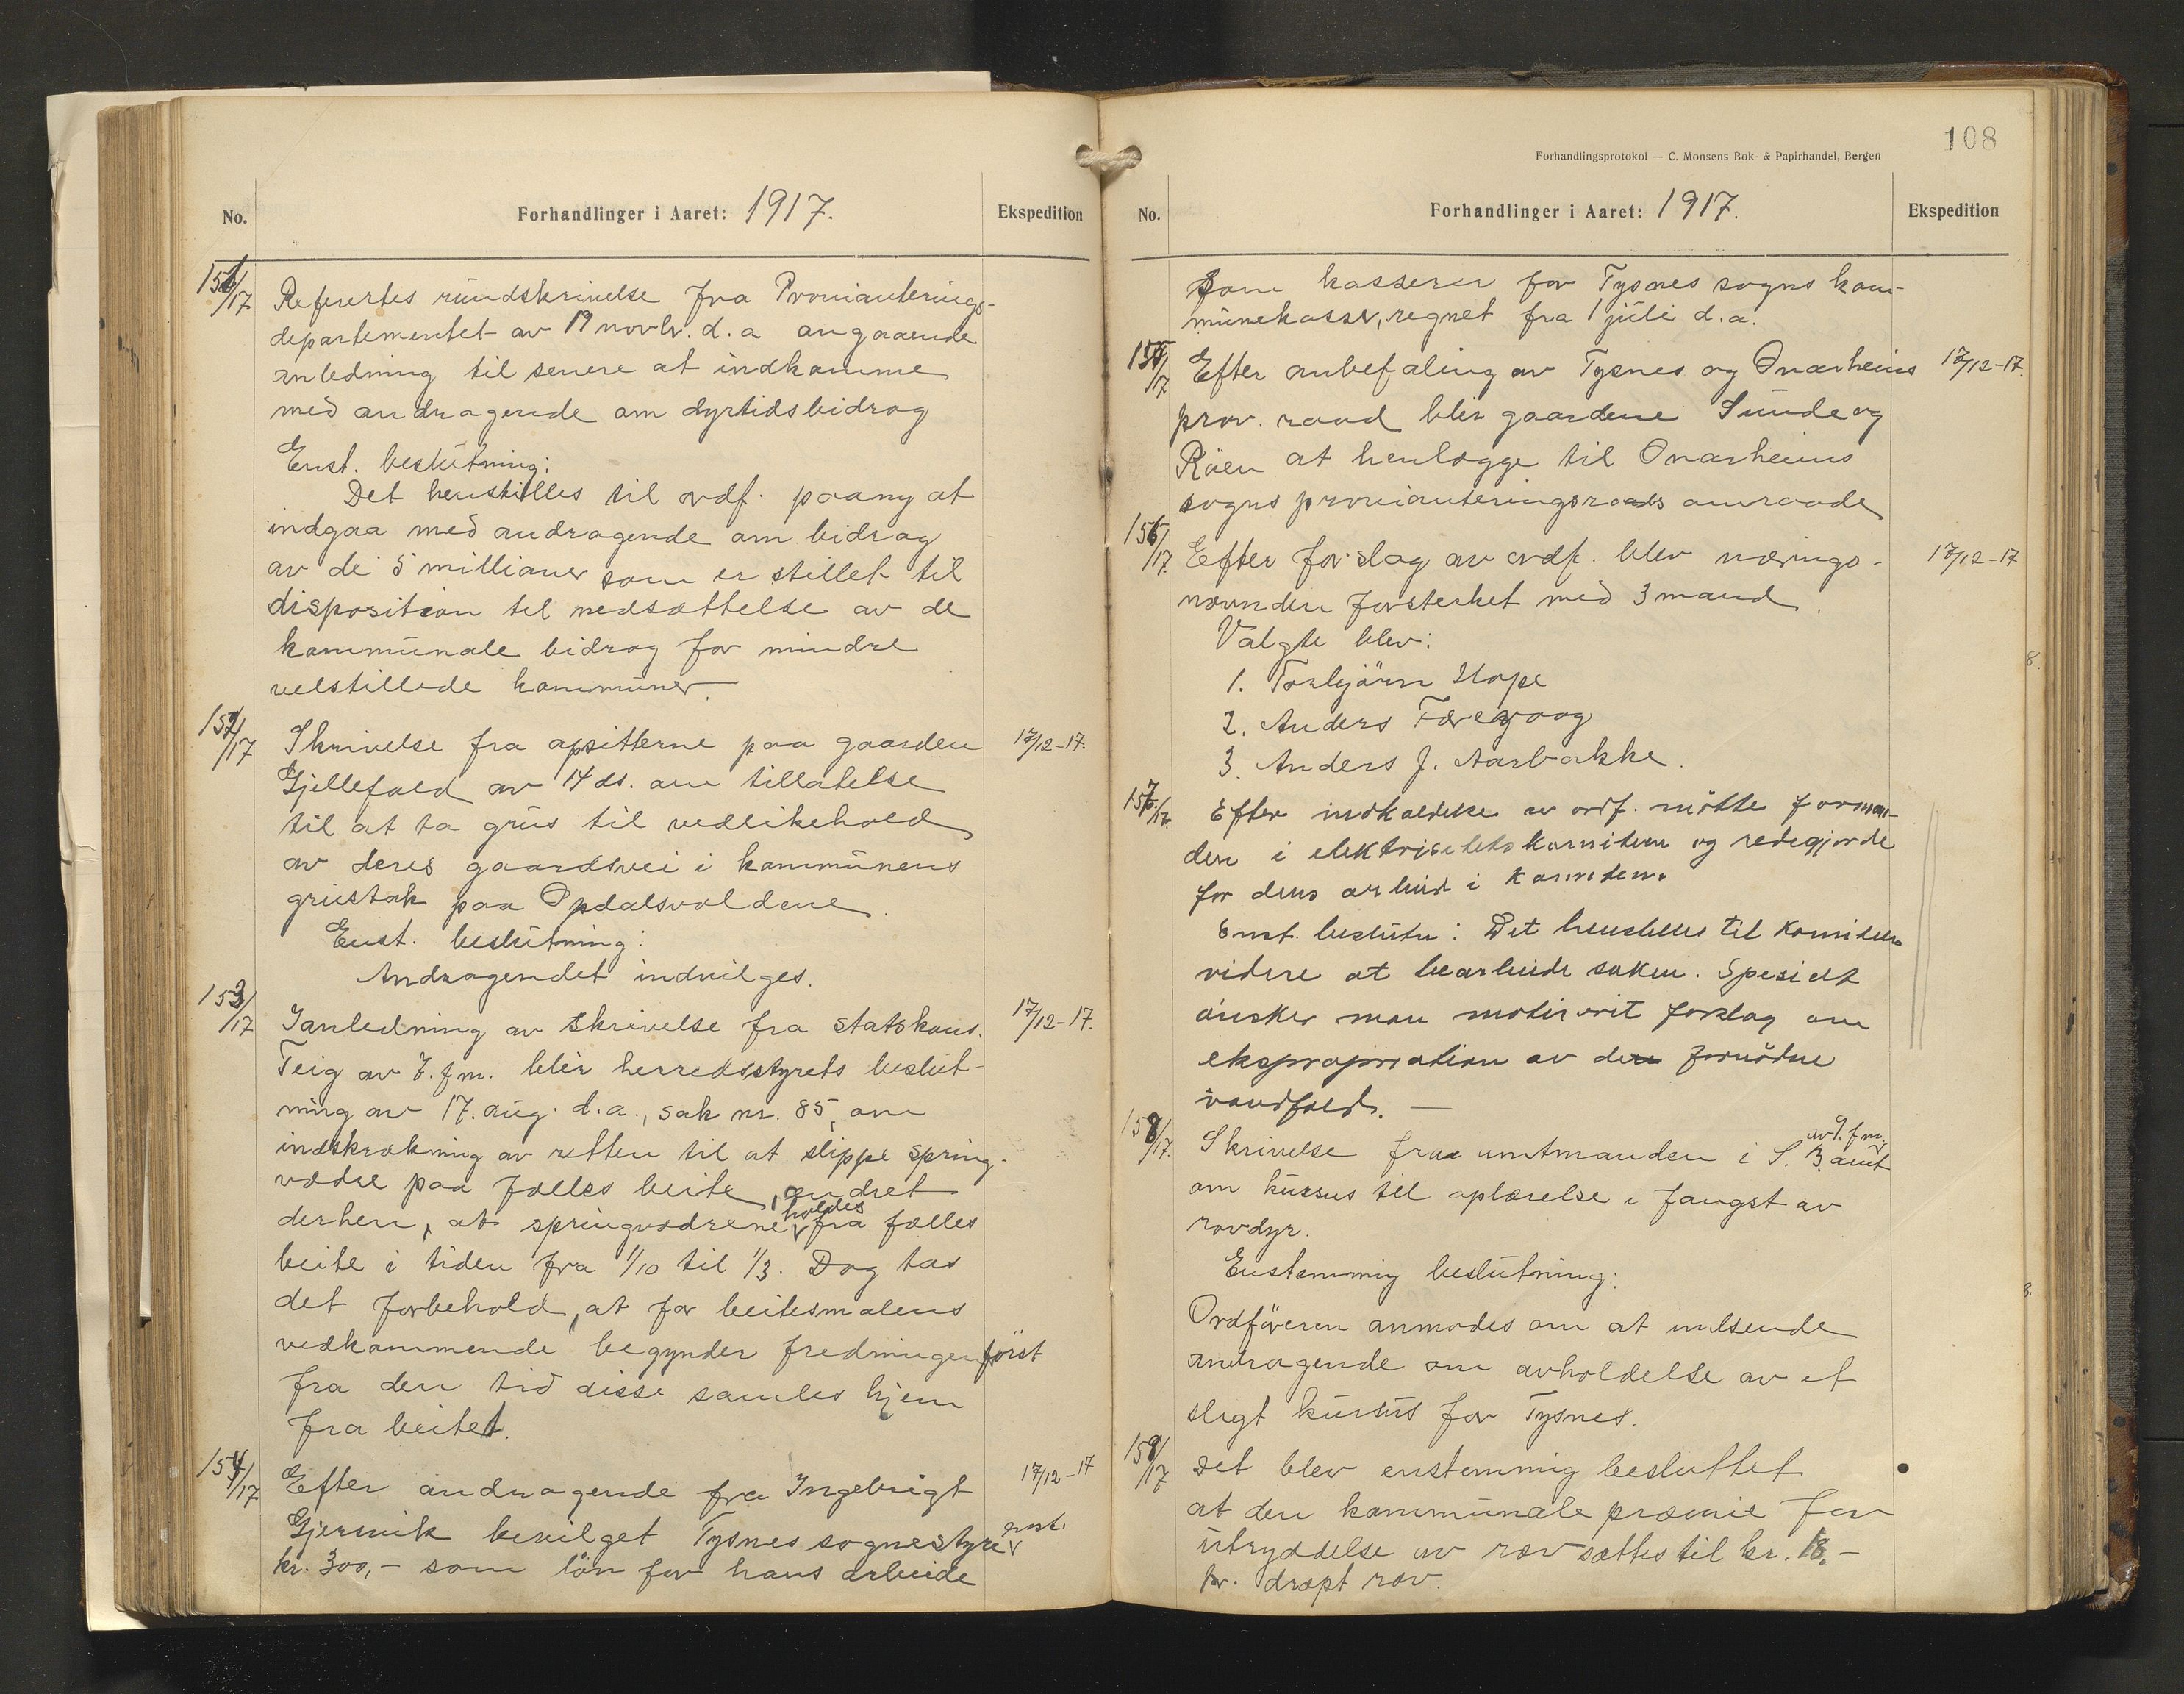 No.
Forhandlinger i Aaret: 1917.
Ekspedition
151/17
Refertes rundskrivelse fra Provianterings-
departementet av 19 novbr. d.a angaaende
anledning til senere at indkomme
med andragende om dyrtidsbidrag
Enst. beslutning:
Det henstilles til ordf. paany at
indgaa med andragende om bidrag
av de 5 millioner som er stillet til
disposition til nedsættelse av de
kommunale bidrag for mindre
velstillede kommuner.
152/17
Skrivelse fra opsitterne paa gaarden
17/12-17.
Gjellefald av 14 ds. om tillatelse
til at ta grus til vedlikehold
av deres gaardsvei i kommunens
grustak paa Opdalsvoldene.
Enst. beslutning:
Andragendet indvilges.
153/17
I anledning av skrivelse fra statskons.
17/12-17.
Teig av 7. f.m. blir herredsstyrets beslut-
ning av 17. aug. d.a., sak nr. 85, om
indskrækning av retten til at slippe spring-
vædre paa fælles beite, endret
derhen, at springvædrene holdes fra fælles
beite i tiden fra 1/10 til 1/3. Dog tas
det forbehold, at for beitesmalens
vedkommende begynder fredningen först
fra den tid disse samles hjem
fra beitet.
154/17
Efter andragende fra Ingebrigt
17/12-17
Gjersvik bevilget Tysnes sognestyre enst.
kr. 300,- som lön for hans arbeide
108
Forhandlingsprotokol — C. Monsens Bok- & Papirhandel, Bergen
No.
Forhandlinger i Aaret: 1917.
Ekspedition
som kasserer for Tysnes sogns kom-
munekasse, regnet fra 1 juli d.a.
155/17
Efter anbefaling av Tysnes og Onarheims
17/12-17.
prov. raad blir gaardene Sunde og
Röen at henlægge til Onarheims
sogns provianteringsraads omraade
156/17.
Efter forslag av ordf. blev nærings-
17/12-17
nævnden forsterket med 3 mand.
Valgte blev:
1. Torbjörn Hope
2. Anders Færevaag
3. Anders J. Aarbakke.
157/17.
Efter indkaldelse av ordf. mötte forman-
den i elektrisitetskomiteen og redegjorde
for dens arbeid i komiteen.
Enst. beslutn: Det henstilles til Komiteen
videre at bearbeide saken. Spesielt
önsker man motivert forslag om
ekspropriation av de fornödne
vandfald. —
158/17.
Skrivelse fra amtmanden i S. B. amt av 9. f.m.
om kursus til oplærelse i fangst av
rovdyr.
Enstemmig beslutning:
Ordföreren anmodes om at indsende
andragende om avholdelse av et
sligt kursus for Tysnes.
159/17
Det blev enstemmig besluttet
at den kommunale præmie for
utryddelse av ræv sættes til kr. 18,-
pr. dræpt ræv.